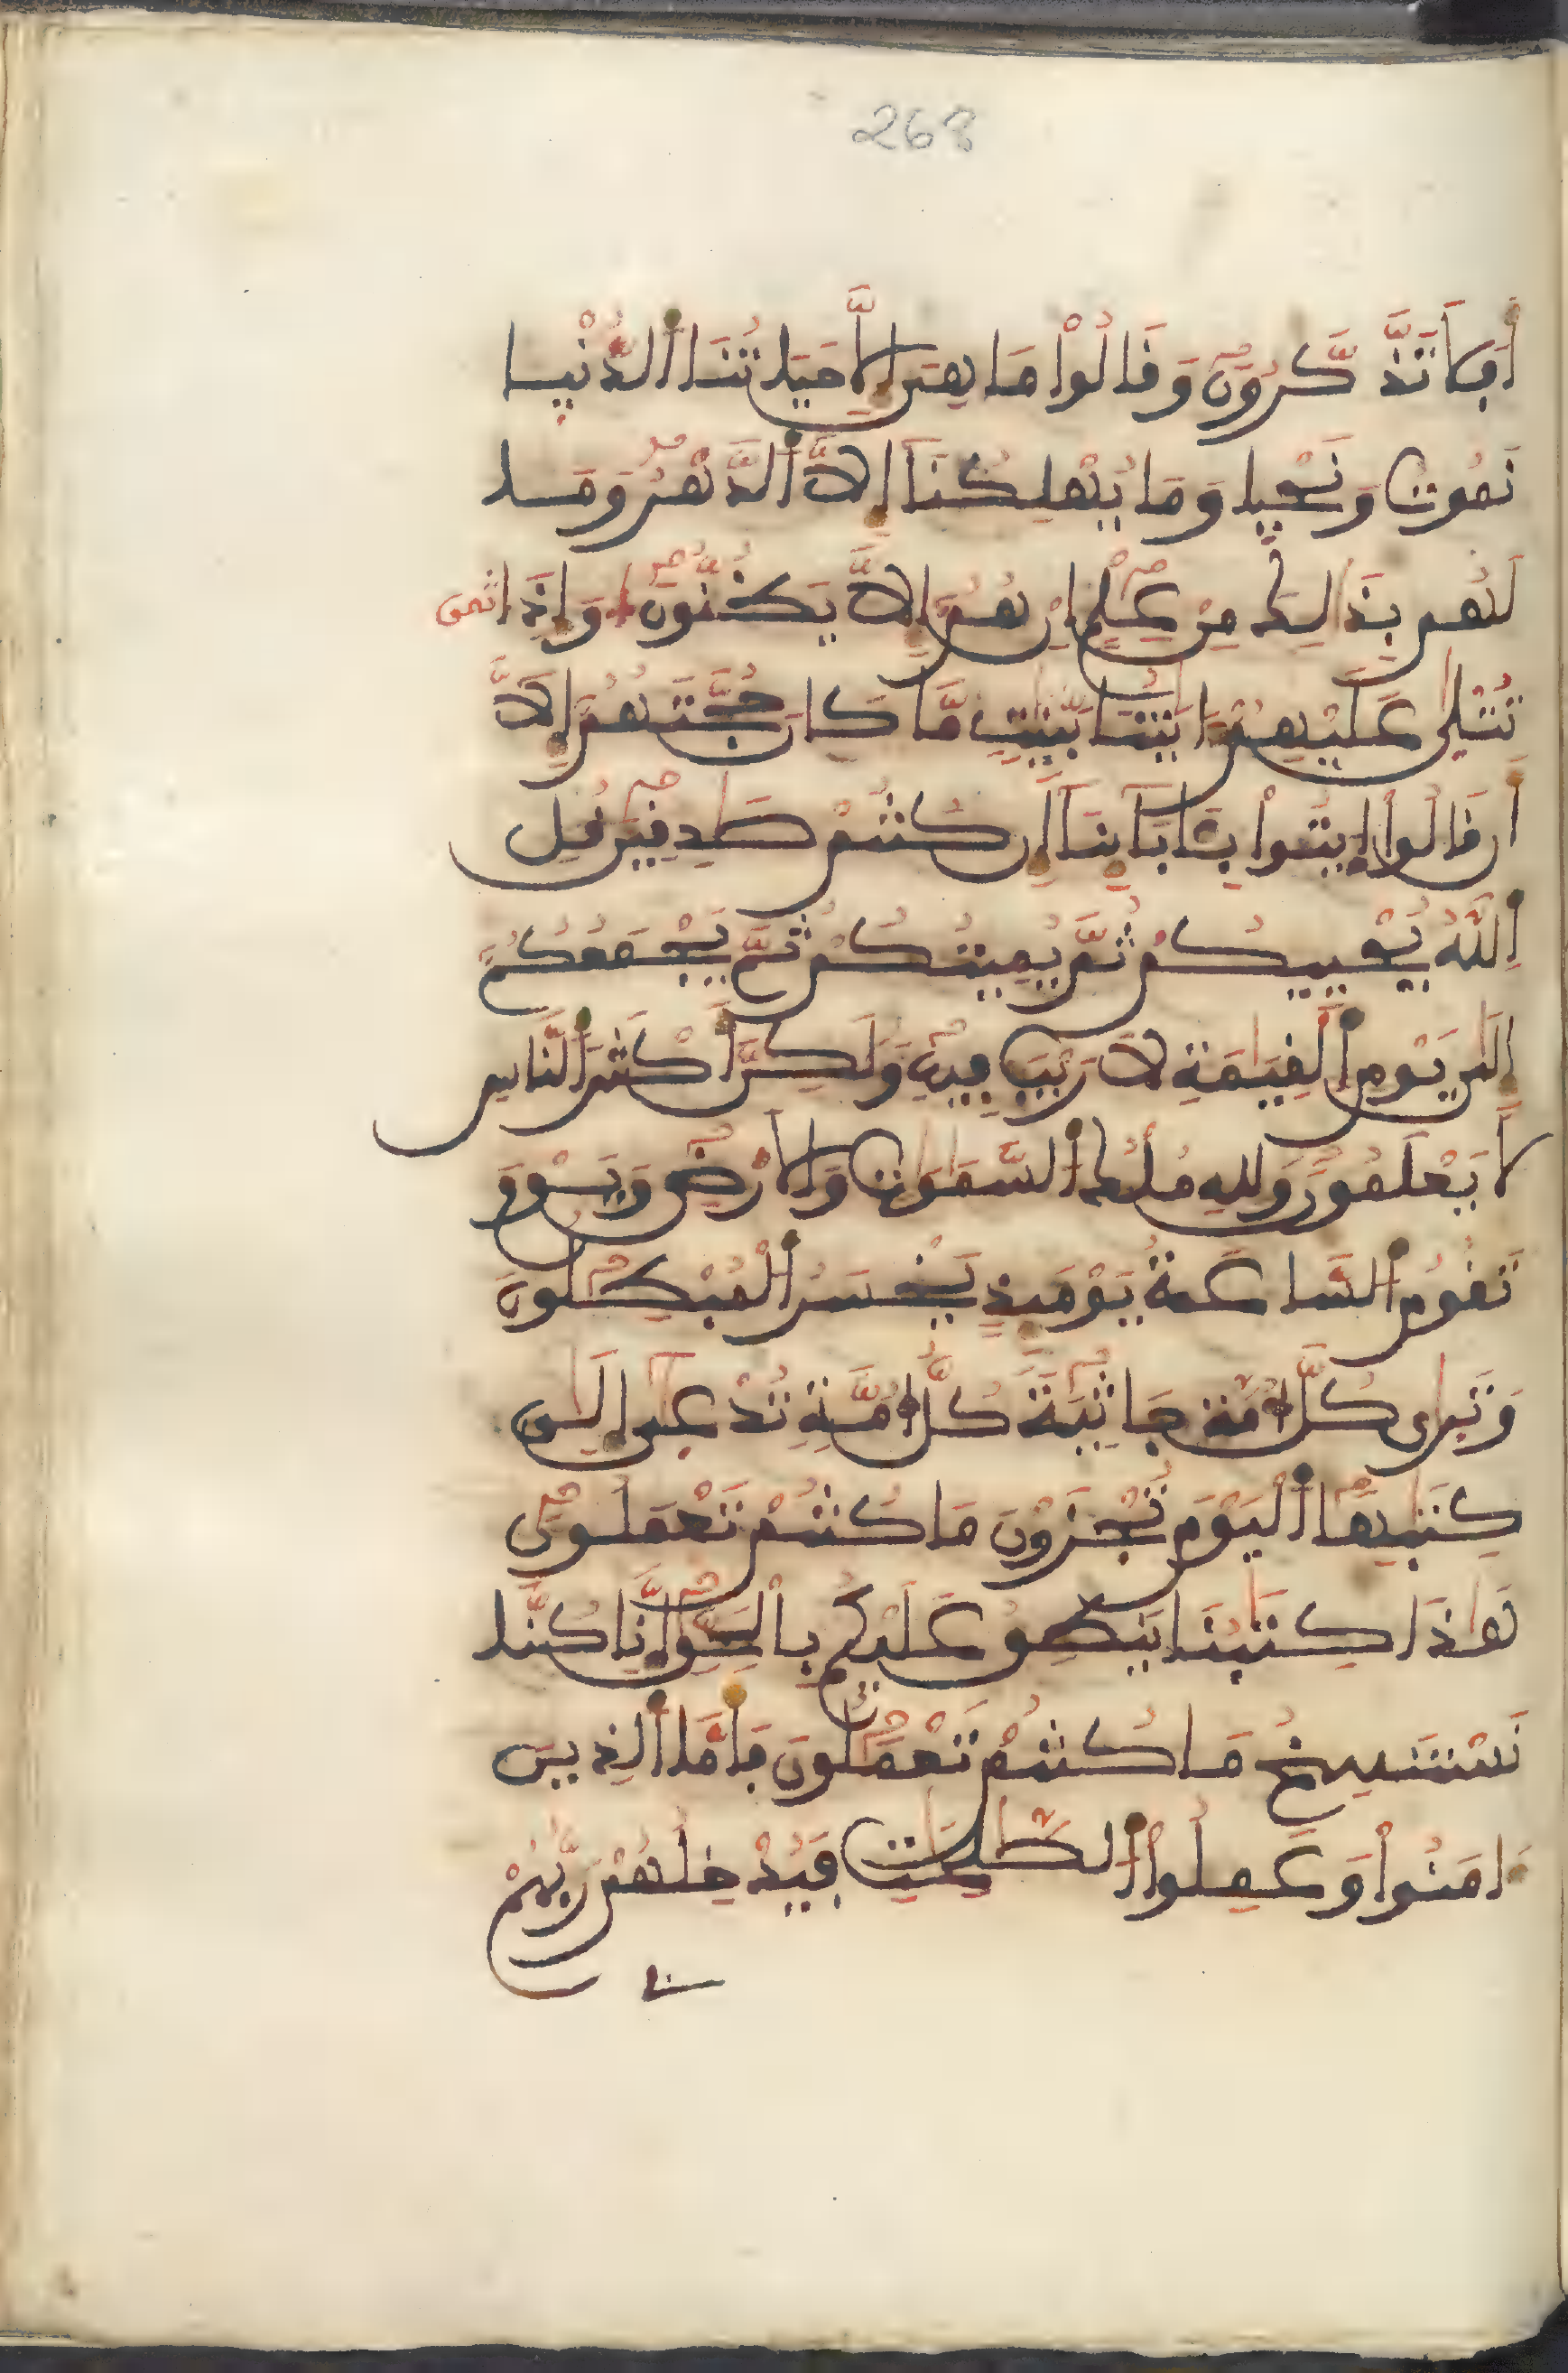 268
أَفَلَا تَذَّكَّرُونَ وَقَالُواْ مَا هِيَ إِلَّا حَيَاتُنَا اَلدُّنْيَا
نَمُوتُ وَنَحْيَا وَمَا يُهْلِكُنَا إِلَّا اَلدَّهْرُ وَمَا
لَهُم بِذَالِكَ مِنْ عِلْمٍ اِنْ هُمُ إِلَّا يَظُنُّونَ وَإِذَا
تُتْلَى عَلَيْهِمُ ءَايَتُنَا بَيِّنَتٍ مَّا كَانَ حُجَّتَهُمُ إِلَّا
أَن قَالُواْ اُيتُواْ بِـَٔابَآئِنَآ إِن كُنتُمْ صَدِقِينَ قُلِ
اِللَّهُ يُحْيِيكُمْ ثُمَّ يُمِيتُكُمْ ثُمَّ يَجْمَعُكُمُ
إِلَى يَوْمِ اِلْقِيَمَةِ لَا رَيْبَ فِيهِ وَلَكِنَّ أَكْثَرَ اَلنَّاسِ
لَا يَعْلَمُونَ وَلِلهِ مُلْكُ اُلسَّمَوَتِ وَالَارْضِ وَيَوْمَ
تَقُومُ اُلسَّاعَةُ يَوْمَئِذٍ يَخْسَرُ اُلْمُبْطِلُونَ
وَتَرَى كُلَّ أُمَّةٍ جَاثِيَةً كُلُّ أُمَّةٍ تُدْعَى إِلَى
كِتَبِهَا اَلْيَوْمَ تُجْزَوْنَ مَا كُنتُمْ تَعْمَلُونَ
هَذَا كِتَبُنَا يَنطِقُ عَلَيْكُم بِالْحَقِّ إِنَّا كُنَّا
نَسْتَنسِخُ مَا كُنتُمْ تَعْمَلُونَ فَأَمَّا اَلذِينَ
ءَامَنُواْ وَعَمِلُواْ اُلصَّلِحَتِ فَيُدْخِلُهُمْ رَبُّهُمْ